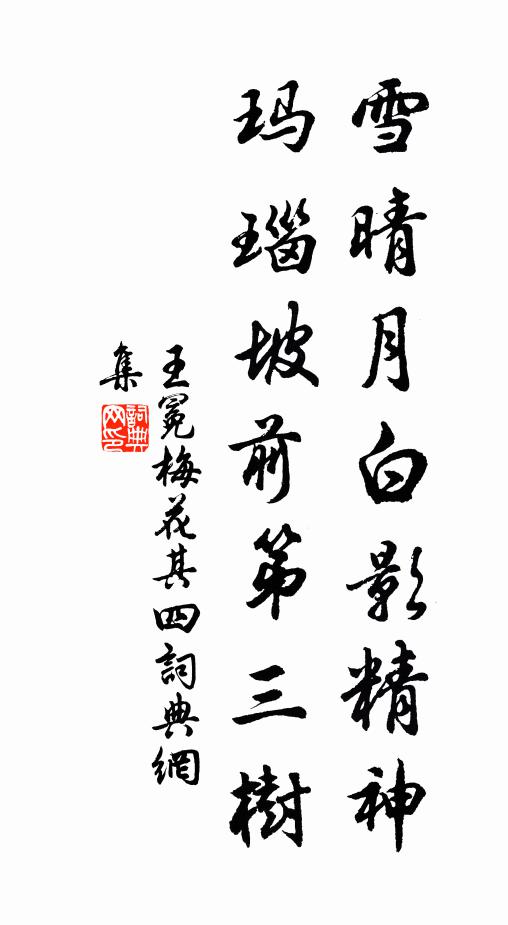 雪晴月白影精神
玛瑙坡前第三樹
王冕梅花其四詞典網
集
詞典网印